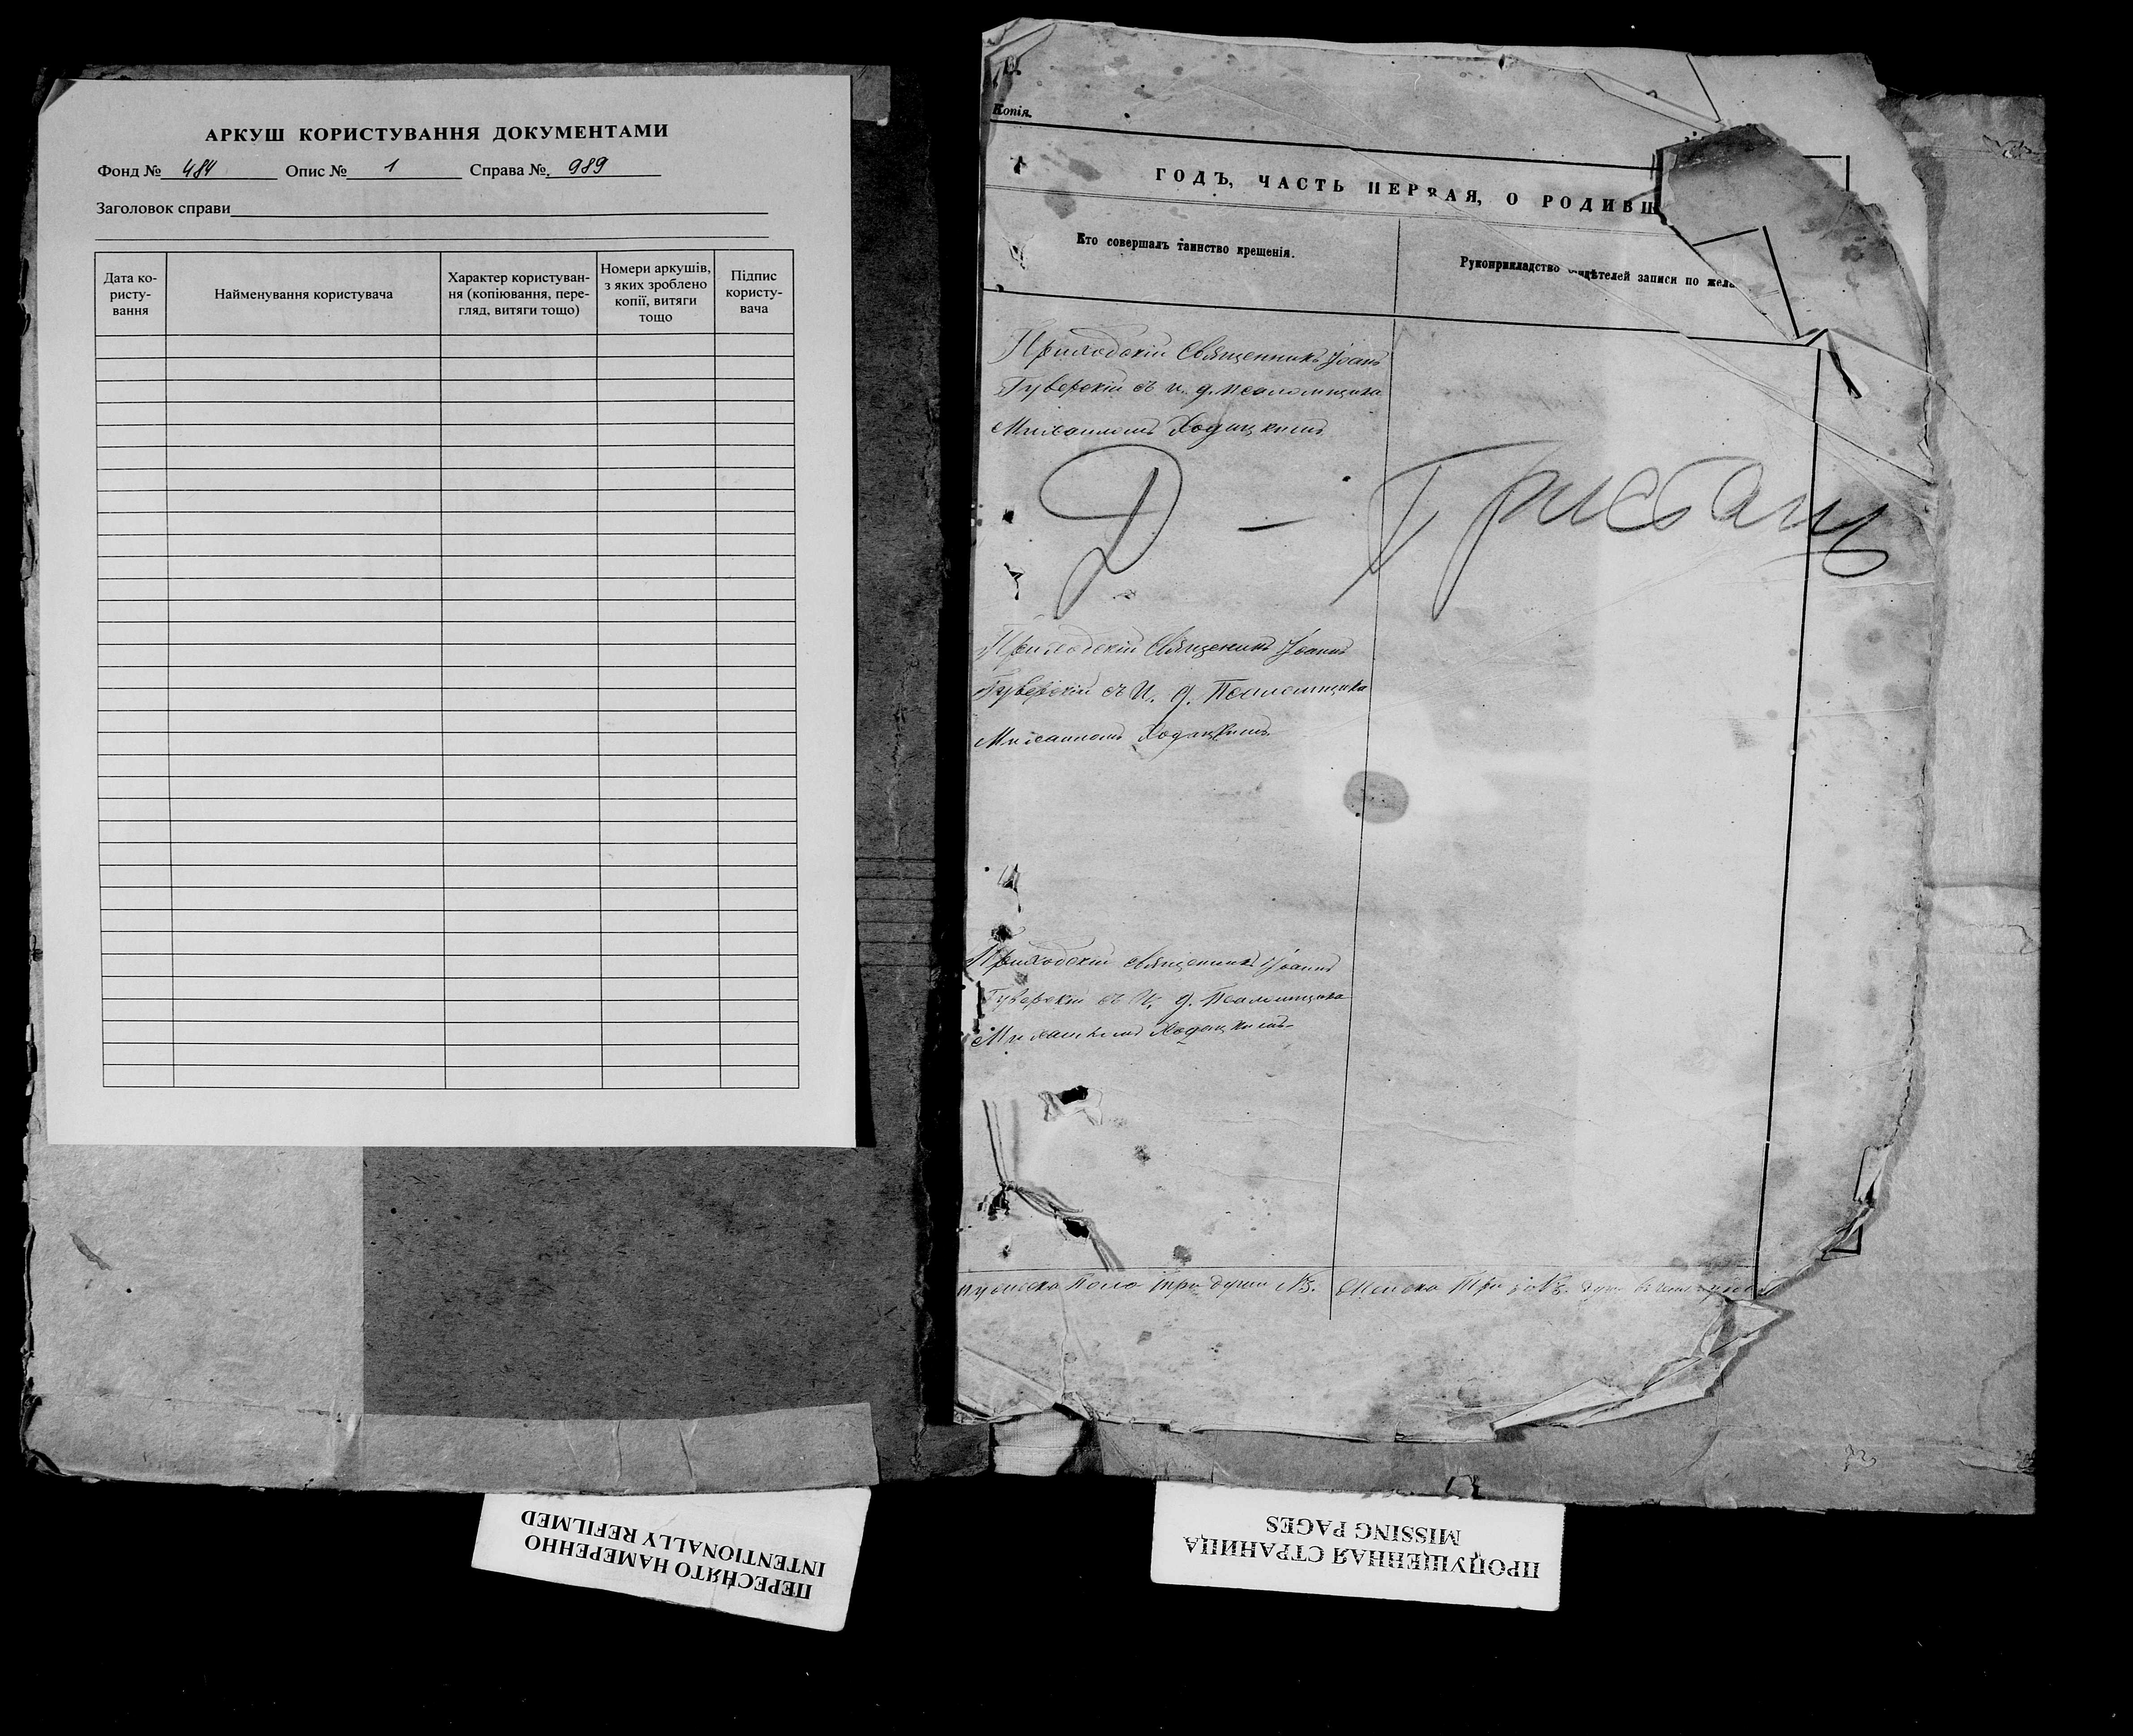 АРКУШ КОРИСТУВАННЯ ДОКУМЕНТАМИ
Фонд № 484 Опис № 1 Справа № 989
Заголовок справи
Дата ко-
ристу-
вання
Найменування користувача
Характер користуван-
ня (копіювання, пере-
гляд, витяги тощо)
Номери аркушів,
з яких зроблено
копії, витяги
тощо
Підпис
користу-
вача
Копія.
ГОДЪ, ЧАСТЬ ПЕРВАЯ, О РОДИВШ
Кто совершалъ таинство крещенія.
Рукоприкладство свидѣтелей записи по жела
Приходскій Священникъ Іоаннъ
Гуверскій съ и. д. псаломщика
Михаиломъ Ходацкимъ
Д - Гристанъ
Приходскій Священникъ Іоаннъ
Гуверскій съ И. д. Псаломщика
Михаиломъ Ходацкимъ
Приходскій Священникъ Іоаннъ
Гуверскій съ И. д. Псаломщика
Михаиломъ Ходацкимъ
мужеска пола три души №3. Женска три
ПЕРЕСНЯТО НАМЕРЕННО
INTENTIONALLY REFILMED
ПРОПУЩЕННАЯ СТРАНИЦА
MISSING PAGES